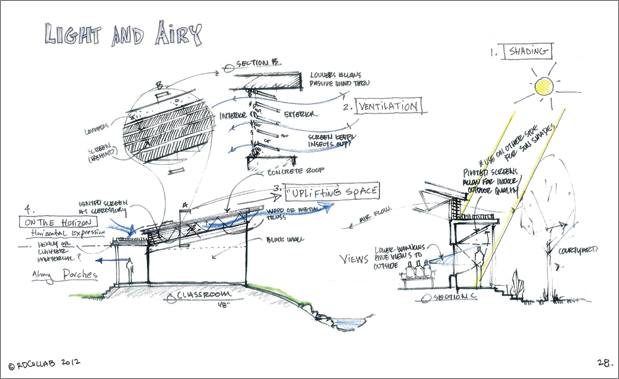 LIGHT AND AIRY
1. SHADING
SECTION B.
LOUVERS ALLOWS
PASSIVE WIND THRU
B
2. VENTILATION
INTERIOR
EXTERIOR
LOUVERS
SCREEN
(BEHIND)
SCREEN KEEPS
INSECTS OUT
CONCRETE ROOF
USE ON OTHER SIDE
FOR SUN SHADES
3.
"UPLIFTING SPACE"
PIVOTED SCREENS
ALLOW FOR INDOOR
OUTDOOR QUALITY
4.
SCREEN
AS CLERESTORY
A
WOOD OR METAL
TRUSS
ON THE HORIZON
Horizontal Expression
AIR FLOW
HEAVY OR
LIGHTER
MATERIAL?
BLOCK WALL
VIEWS
LOWER WINDOWS
GIVE VIEWS TO
OUTSIDE
COURTYARD
Along Porches
CLASSROOM
1/8"
SECTION C
© RDCOLLAB 2012
28.